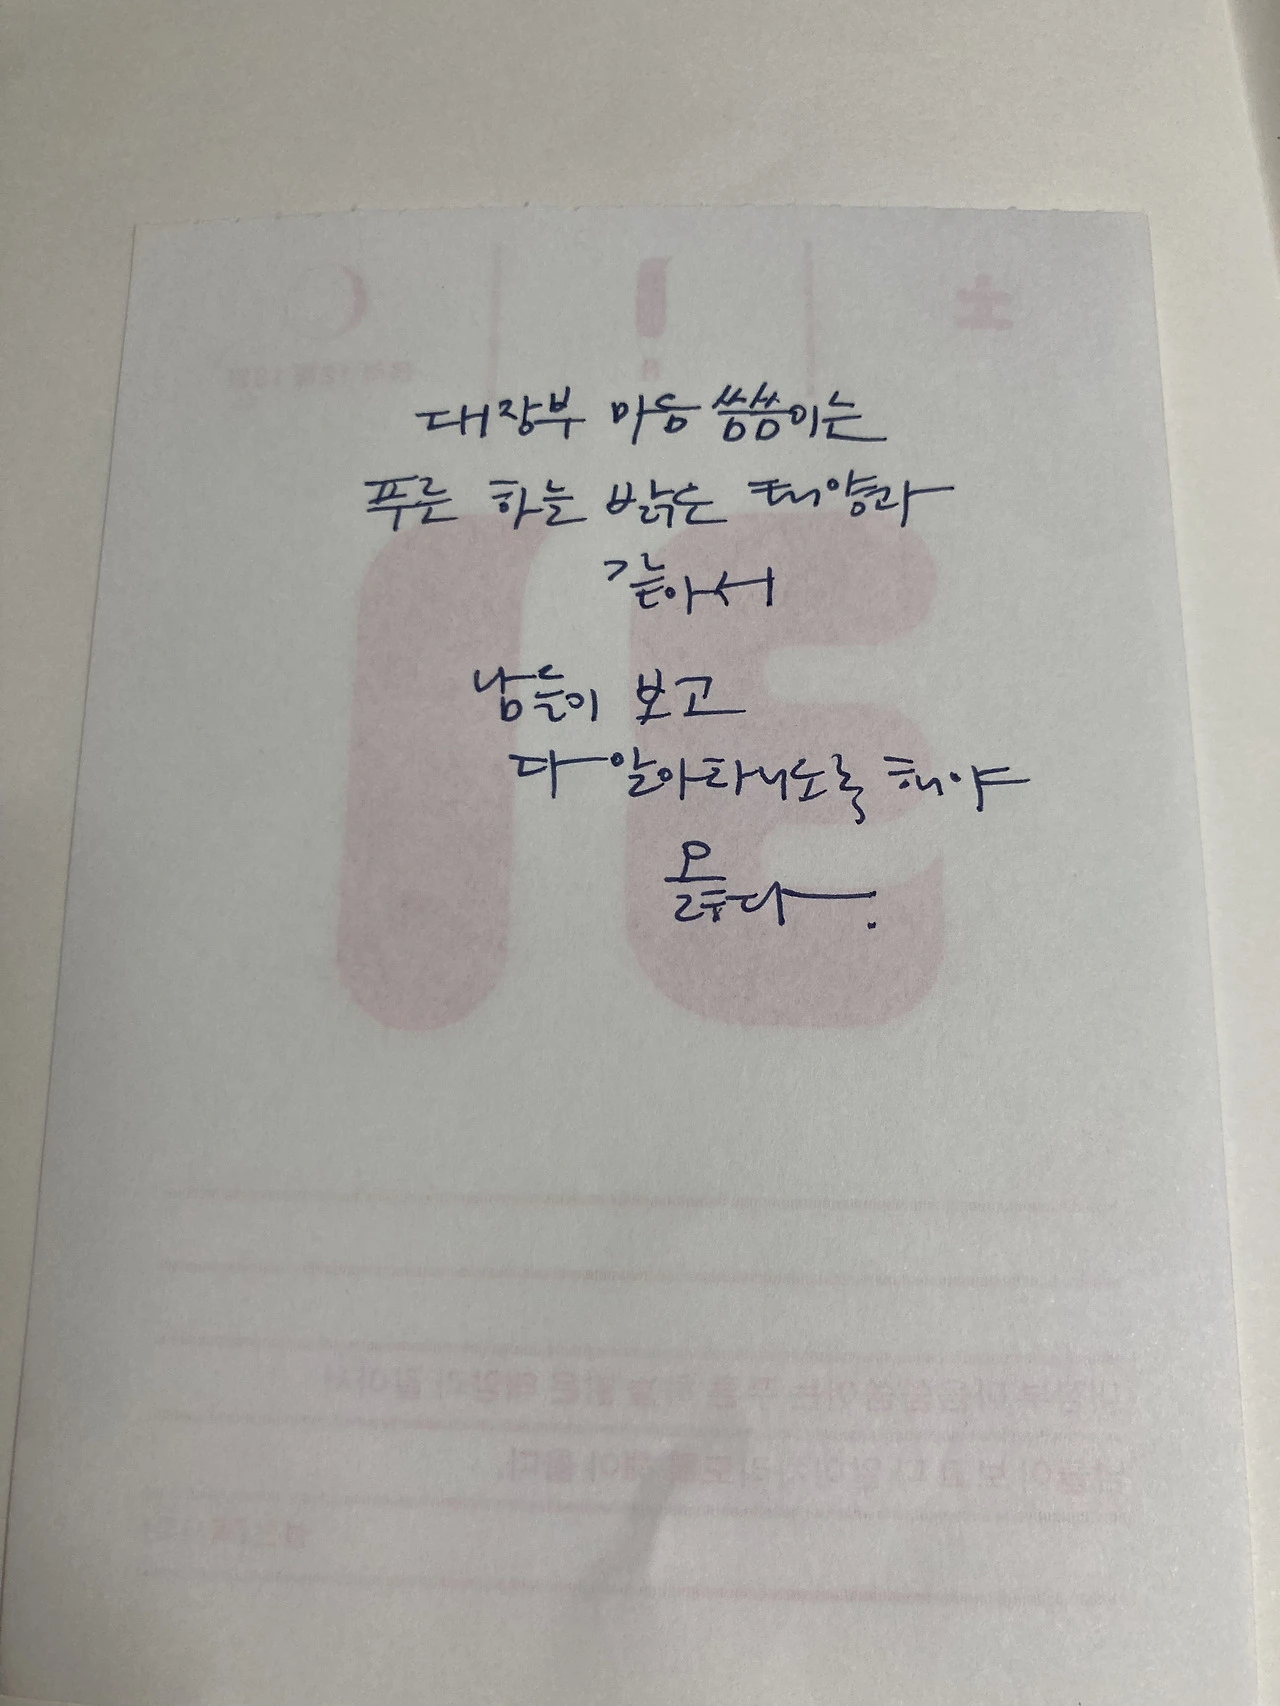 대장부 마음 씀씀이는
푸른 하늘 밝은 태양과
같아서
남들이 보고
다 알아차리도록 해야
옳다.